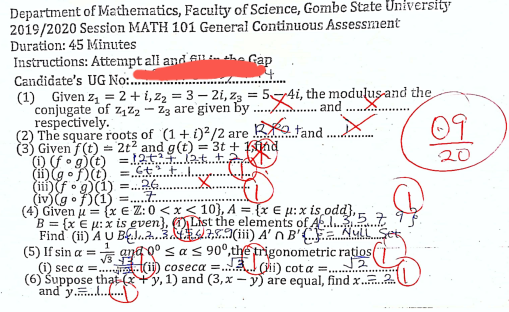 Department of Mathematics, Faculty of Science, Gombe State University
2019/2020 Session MATH 101 General Continuous Assessment
Duration: 45 Minutes
Instructions: Attempt all and fill in the Gap
Candidate's UG No:
(1) Given z₁ = 2 + i, z₂ = 3 − 2i, z₃ = 5 − 4i, the modulus and the
conjugate of z₁z₂ − z₃ are given by ............... and ...............
respectively.
(2) The square roots of (1 + i)²/2 are ............ and ............
09
20
(3) Given f(t) = 2t² and g(t) = 3t + 1, find
(i) (f ∘ g)(t) = 12t² + 12t + 2
(ii) (g ∘ f)(t) = 6t² + 1
(iii) (f ∘ g)(1) = 26
(iv) (g ∘ f)(1) = 7
(4) Given μ = {x ∈ Z: 0 < x < 10}, A = {x ∈ μ: x is odd},
B = {x ∈ μ: x is even}, (i) List the elements of A {1, 3, 5, 7, 9}
Find (ii) A ∪ B {1,2,3,4,5,6,7,8,9} (iii) A′ ∩ B′ { } = Null Set
(5) If sin α = 1/√3 and 0° ≤ α ≤ 90°, the trigonometric ratios
(i) sec α = (ii) cosec α = √3 (iii) cot α = √2
(6) Suppose that (x + y, 1) and (3, x − y) are equal, find x = 2
and y = 1